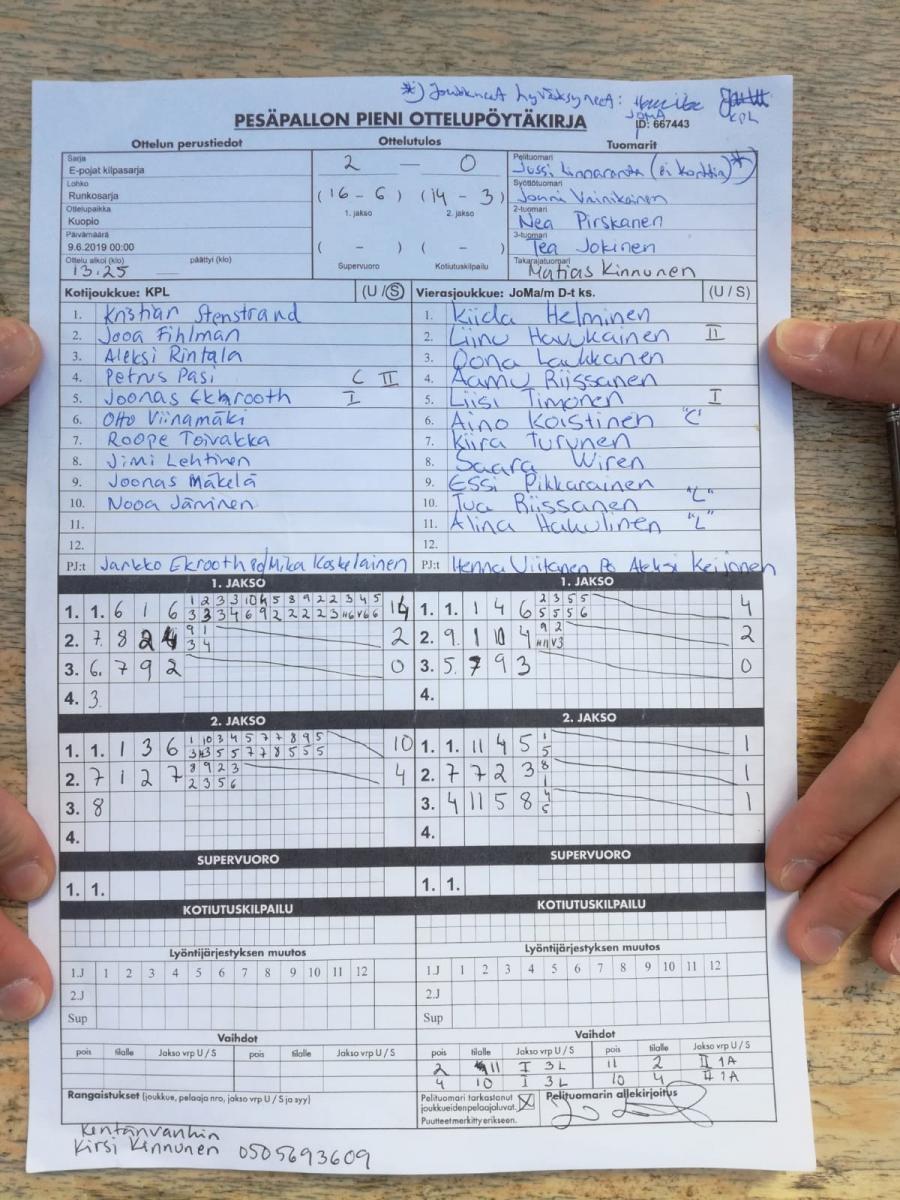 *) Joukkueet hyväksyneet:
JOMA KPL
PESÄPALLON PIENI OTTELUPÖYTÄKIRJA ID: 667443
Ottelun perustiedot Ottelutulos Tuomarit
Sarja
E-pojat kilpasarja
Lohko
Runkosarja
Ottelupaikka
Kuopio
Päivämäärä
9.6.2019 00:00
Ottelu alkoi (klo) päättyi (klo)
13.25
2 — 0
(16 - 6) (14 - 3)
1. jakso 2. jakso
( - ) ( - )
Supervuoro Kotiutuskilpailu
Pelituomari
Jussi Linnaranta (ei korttia) *)
Syöttötuomari
Jonni Vainikainen
2-tuomari
Nea Pirskanen
3-tuomari
Tea Jokinen
Takarajatuomari
Matias Kinnunen
Kotijoukkue: KPL (U / S)
1. Kristian Stenstrand
2. Jooa Fihlman
3. Aleksi Rintala
4. Petrus Pasi C II
5. Joonas Ekhrooth I
6. Otto Viinamäki
7. Roope Toivakka
8. Jimi Lehtinen
9. Joonas Mäkelä
10. Nooa Jäminen
11.
12.
PJ:t Jarkko Ekrooth Mika Koskelainen
Vierasjoukkue: JoMa/m D-t ks. (U / S)
1. Kiida Helminen
2. Liinu Havukainen II
3. Oona Laukkanen
4. Aamu Riissanen
5. Liisi Timonen I
6. Aino Koistinen "C"
7. Kiira Turunen
8. Saara Wiren
9. Essi Pikkarainen
10. Tua Riissanen "L"
11. Alina Hakulinen "L"
12.
PJ:t Henna Viitanen Aleksi Keijonen
1. JAKSO
1. 1. 6 1 6 14
2. 7. 8 2 4 9 1 2
3 4
3. 6. 7 9 2 0
4. 3
1. JAKSO
1. 1. 1 4 6 2 3 5 5 4
5 5 5 6
2. 9. 1 10 4 9 2 2
3. 5. 7 9 3 0
4.
2. JAKSO
1. 1. 1 3 6 1 10 3 4 5 7 7 8 9 5 10
2. 7 1 2 7 8 9 2 3 4
2 3 5 6
3. 8
4.
2. JAKSO
1. 1. 11 4 5 1 1
5
2. 7 7 2 3 8 1
1
3. 4 11 5 8 4 1
5
4.
SUPERVUORO
1. 1.
SUPERVUORO
1. 1.
KOTIUTUSKILPAILU
KOTIUTUSKILPAILU
Lyöntijärjestyksen muutos
1.J 1 2 3 4 5 6 7 8 9 10 11 12
2.J
Sup
Lyöntijärjestyksen muutos
1.J 1 2 3 4 5 6 7 8 9 10 11 12
2.J
Sup
Vaihdot
pois tilalle Jakso vrp U / S pois tilalle Jakso vrp U / S
Vaihdot
pois tilalle Jakso vrp U / S pois tilalle Jakso vrp U / S
2 11 I 3L 11 2 II 1A
4 10 I 3L 10 4 II 1A
Rangaistukset (joukkue, pelaaja nro, jakso vrp U / S ja syy)
Pelituomari tarkastanut
joukkueidenpelaajaluvat.
Puutteet merkitty erikseen.
Pelituomarin allekirjoitus
Kentänvanhin
Kirsi Kinnunen 0505693609